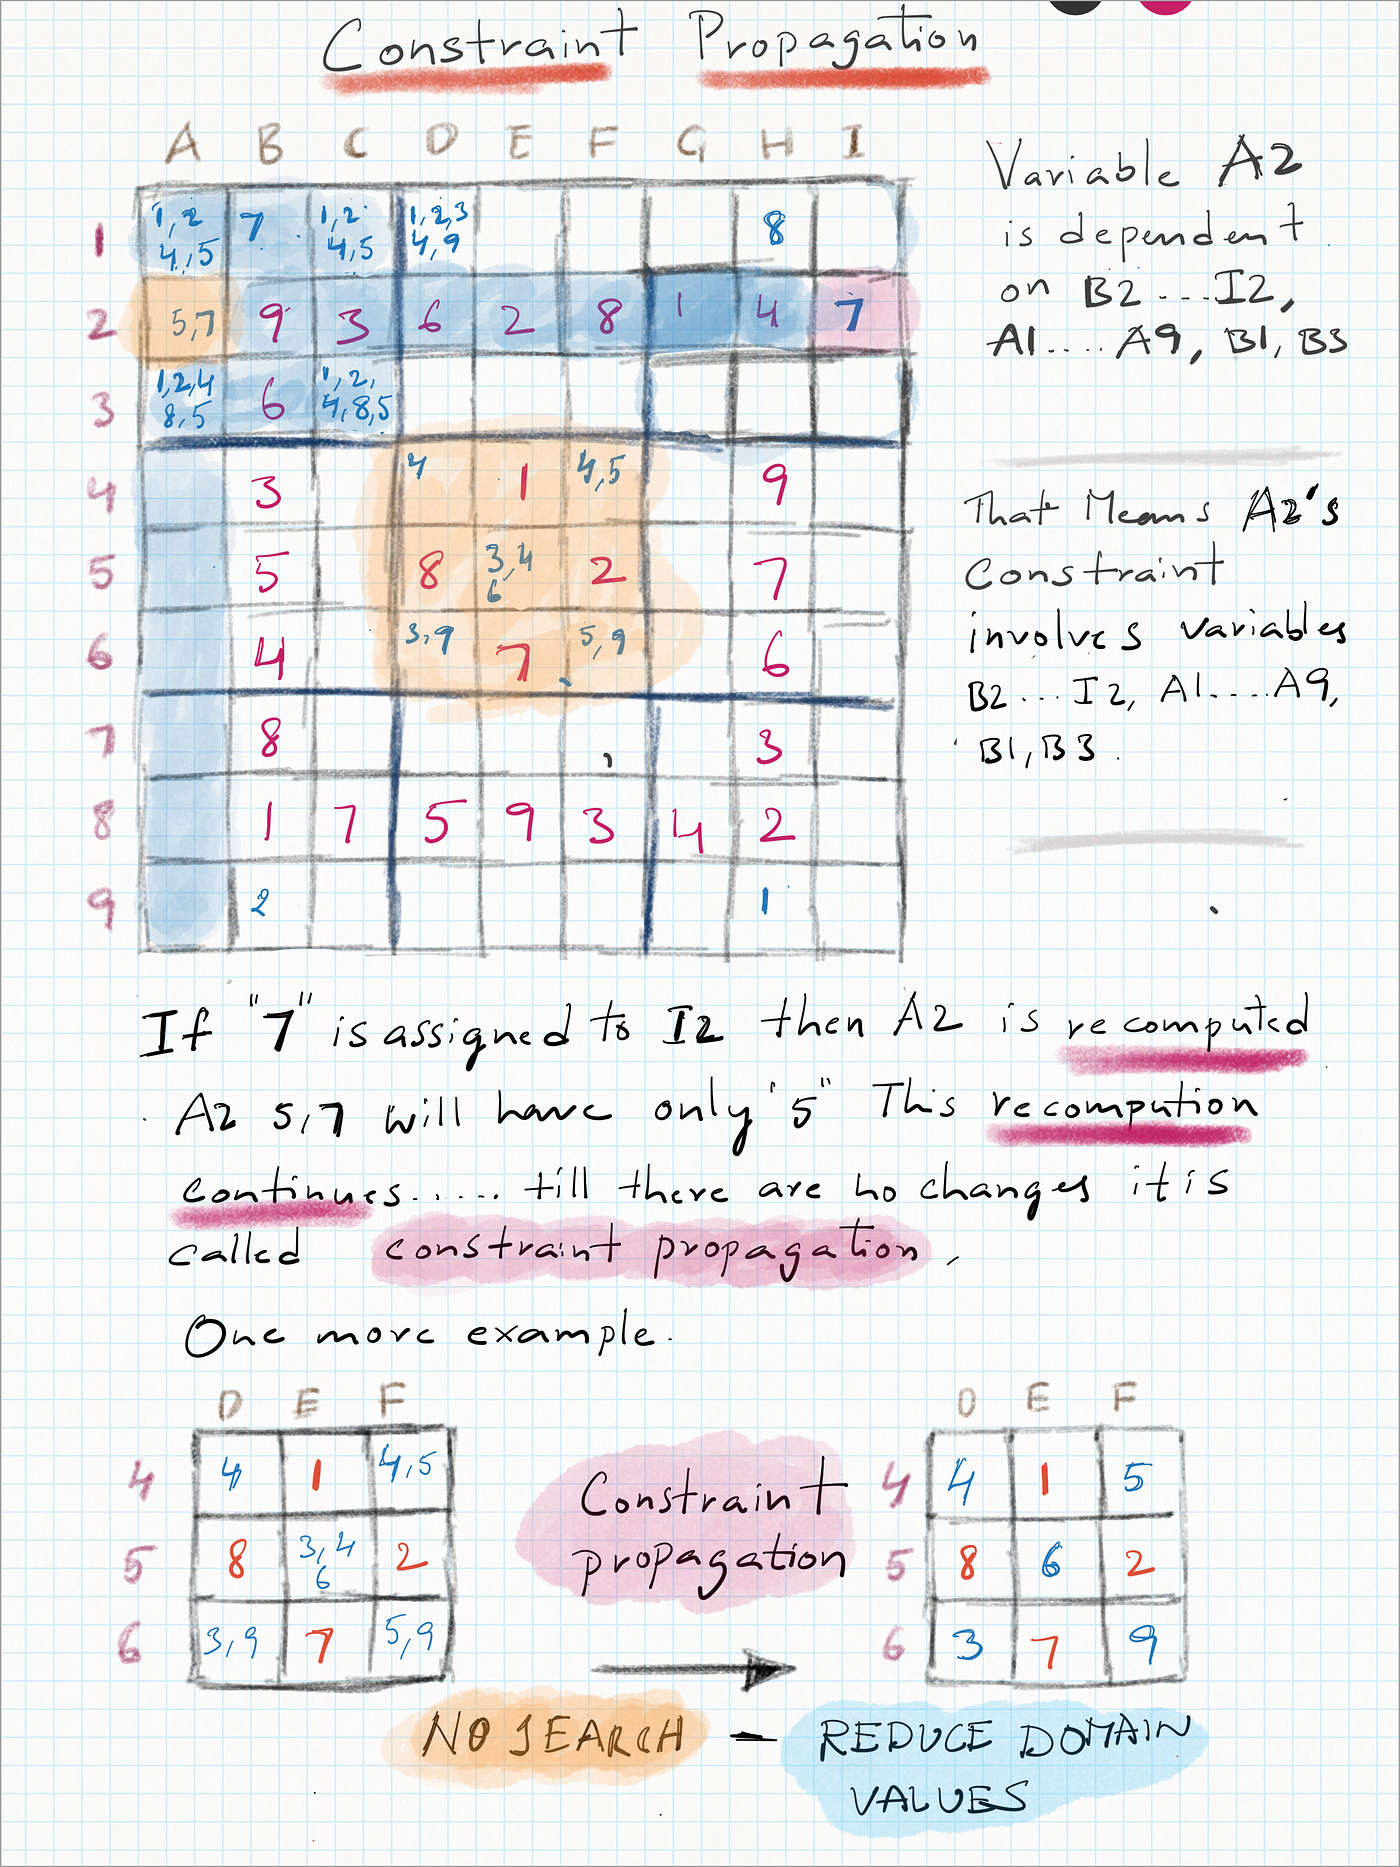 Constraint Propagation
A B C D E F G H I
1 1,2 4,5 7 1,2 4,5 1,2,3 4,9 8
2 5,7 9 3 6 2 8 1 4 7
3 1,2,4 8,5 6 1,2, 4,8,5
4 3 4 1 4,5 9
5 5 8 3,4 6 2 7
6 4 3,9 7 5,9 6
7 8 3
8 1 7 5 9 3 4 2
9 2 1
Variable A2
is dependent
on B2...I2,
A1....A9, B1, B3
That Means A2's
Constraint
involves variables
B2...I2, A1....A9,
B1, B3.
If "7" is assigned to I2 then A2 is recomputed
A2 5,7 will have only '5" This recompution
continues...... till there are no changes it is
called constraint propagation,
One more example.
D E F
4 4 1 4,5
5 8 3,4 6 2
6 3,9 7 5,9
Constraint
propagation
D E F
4 4 1 5
5 8 6 2
6 3 7 9
NO SEARCH - REDUCE DOMAIN
VALUES